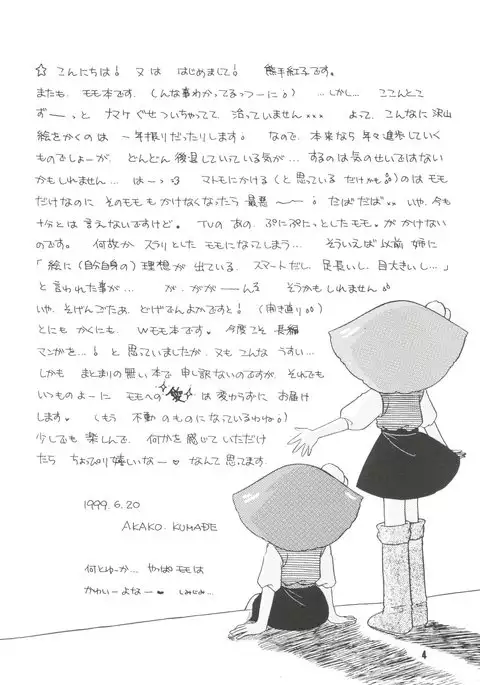 ☆ こんにちは! 又は はじめまして! 熊手紅子です。
またも、モモ本です。(んな事わかってるっつーに!) …しかし… ここんとこ
ずーーっと ナマケぐせついちゃってて、冶っていません××× よって、こんなに沢山
絵をかくのは 一年振りだったりします。 なので、本来なら年々進歩していく
ものでしょーが、どんどん後退していっている気が… するのは気のせいではない
かもしれません… はーっ マトモにかける(と思っているだけかも)のはモモ
だけなのに そのモモもかけなくなったら最悪〜〜! だばだば×× いや、今も
十分とは言えないですけど。 TVのあの、ぷにぷにっとしたモモ。がかけない
のです。 何故かスラリとしたモモになってしまう… そういえば以前 姉に
「絵に(自分自身の)理想が出ている、スマートだし、足長いし、目大きいし…」
と言われた事が… が、ががーんる そうかもしれません
いや、そげんごたぁ、どげでんよかですと! (開き直り)
とにもかくにも、Wモモ本です。今度こそ長編
マンガを…! と思っていましたが、又もこんなうすい…
しかも まとまりの無い本で申し訳ないのですが、それでも
いつものよーに モモへの☆愛☆は変わらずにお届け
します。(もう 不動のものになっているわりに)
少しでも楽しんで、何かを感じていただけ
たら ちょっぴり嬉しいなー♥ なんて思ってます。
1999.6.20
AKAKO. KUMADE
何とゆーか… やっぱモモは
かわいーよなー♥ しみじみ…
4